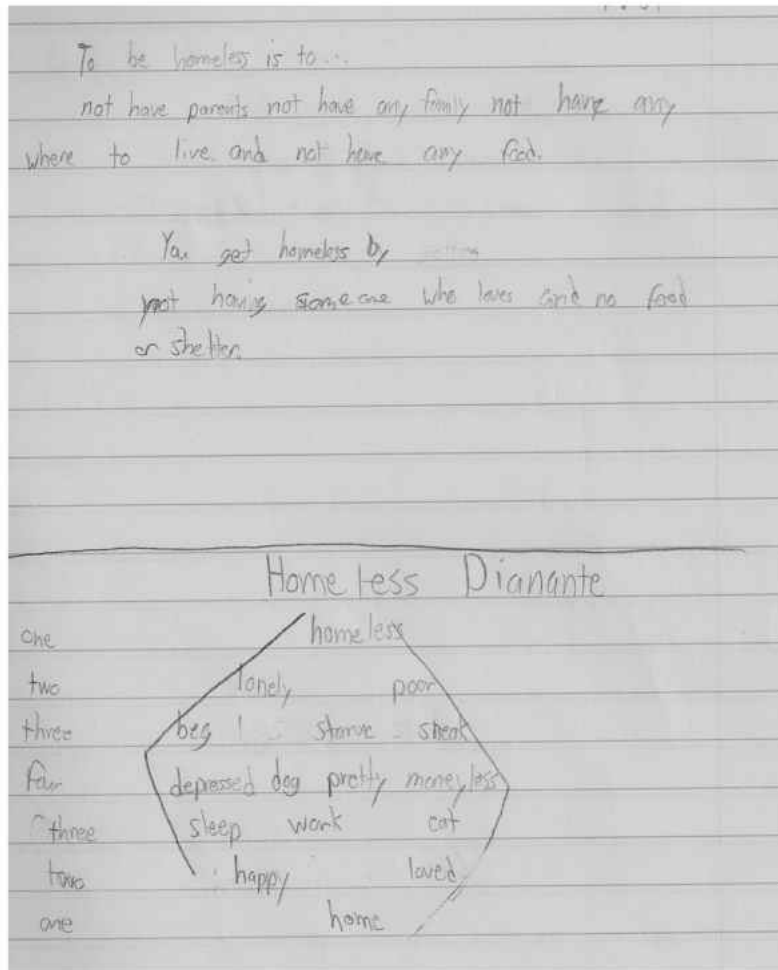 To be homeless is to...
not have parents not have any family not have any
where to live and not have any food.
You get homeless by
not having someone who loves and no food
or shelter.
Homeless Dianante
one homeless
two lonely poor
three beg starve sneak
four depressed dog pretty moneyless
three sleep work
two happy loved
one home